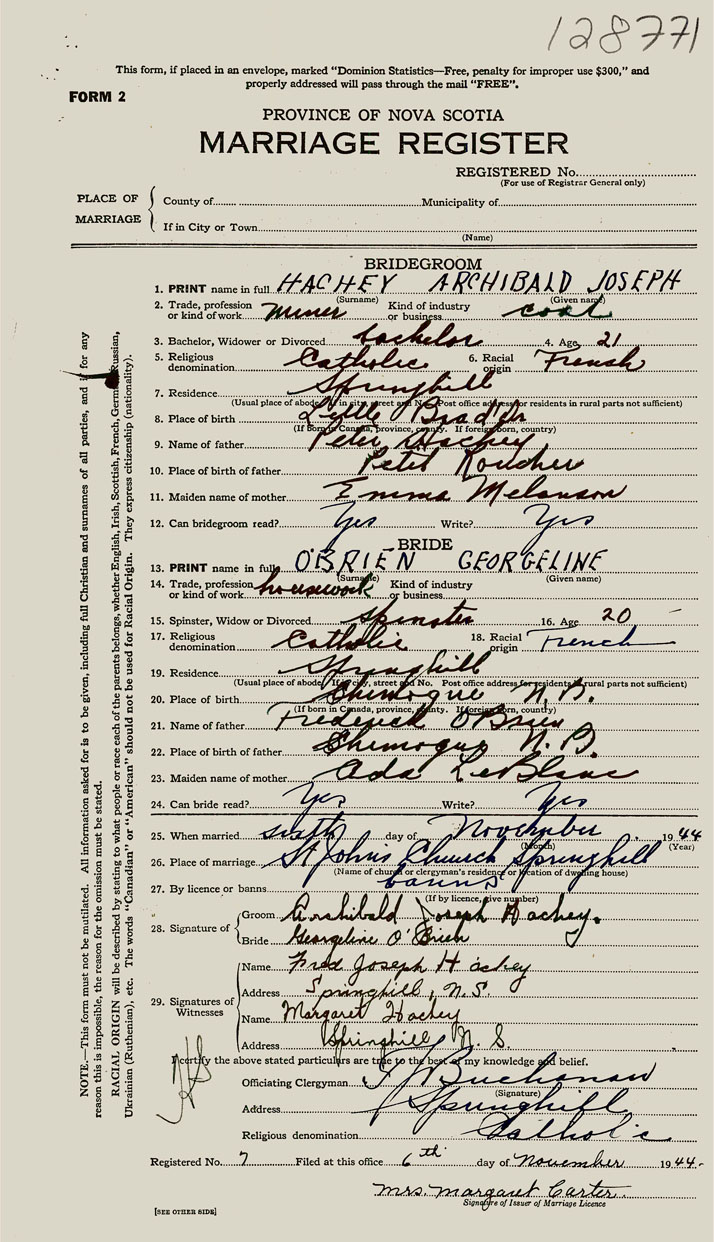 128771
This form, if placed in an envelope, marked "Dominion Statistics—Free, penalty for improper use $300," and
properly addressed will pass through the mail "FREE".
FORM 2
PROVINCE OF NOVA SCOTIA
MARRIAGE REGISTER
REGISTERED No.
(For use of Registrar General only)
PLACE OF MARRIAGE
County of Municipality of
If in City or Town
(Name)
BRIDEGROOM
1. PRINT name in full HACHEY ARCHIBALD JOSEPH
(Surname) (Given name)
2. Trade, profession or kind of work miner Kind of industry or business coal
3. Bachelor, Widower or Divorced bachelor 4. Age 21
5. Religious denomination Catholic 6. Racial origin French
7. Residence Springhill
(Usual place of abode. If in city, street and No. Post office address for residents in rural parts not sufficient)
8. Place of birth Little
(If born in Canada, province, county. If foreign born, country)
9. Name of father Peter Hachey
10. Place of birth of father Petit
11. Maiden name of mother Emma Melanson
12. Can bridegroom read? Yes Write? Yes
BRIDE
13. PRINT name in full O'BRIEN GEORGELINE
(Surname) (Given name)
14. Trade, profession or kind of work housework Kind of industry or business
15. Spinster, Widow or Divorced spinster 16. Age 20
17. Religious denomination Catholic 18. Racial origin French
19. Residence Springhill
(Usual place of abode. If in city, street and No. Post office address for residents in rural parts not sufficient)
20. Place of birth Shemogue N.B.
(If born in Canada, province, county. If foreign born, country)
21. Name of father Frederick O'Brien
22. Place of birth of father Shemogue N.B.
23. Maiden name of mother Ada LeBlanc
24. Can bride read? Yes Write? Yes
25. When married sixth day of November 1944
(Month) (Year)
26. Place of marriage St Johns Church Springhill
(Name of church or clergyman's residence or location of dwelling house)
27. By licence or banns banns
(If by licence, give number)
28. Signature of
Groom Archibald Joseph Hachey.
Bride Georgeline O'Brien
29. Signatures of Witnesses
Name Fred Joseph Hachey
Address Springhill, N.S
Name Margaret Hachey
Address Springhill N. S.
I certify the above stated particulars are true to the best of my knowledge and belief.
Officiating Clergyman Buchanan
(Signature)
Address Springhill
Religious denomination Catholic
Registered No. 7 Filed at this office 6th day of November 1944.
Mrs. Margaret Carter.
Signature of Issuer of Marriage Licence
[SEE OTHER SIDE]
NOTE.—This form must not be mutilated. All information asked for is to be given, including full Christian and surnames of all parties, and if for any
reason this is impossible, the reason for the omission must be stated.
RACIAL ORIGIN will be described by stating to what people or race each of the parents belongs, whether English, Irish, Scottish, French, German, Russian,
Ukrainian (Ruthenian), etc. The words "Canadian" or "American" should not be used for Racial Origin. They express citizenship (nationality).